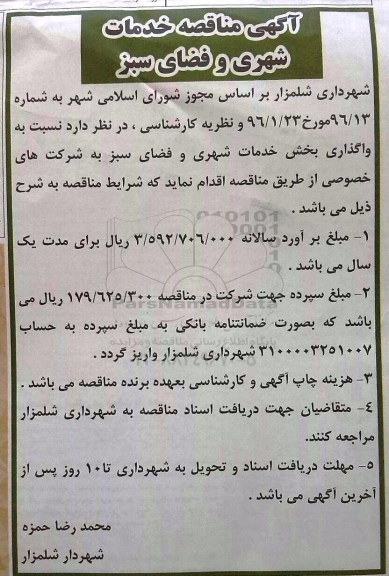 آگهی مناقصه خدمات
شهری و فضای سبز
شهرداری شلمزار بر اساس مجوز شورای اسلامی شهر به شماره
۹۶/۱۳مورخ۹۶/۱/۲۳ و نظریه کارشناسی ، در نظر دارد نسبت به
واگذاری بخش خدمات شهری و فضای سبز به شرکت های
خصوصی از طریق مناقصه اقدام نماید که شرایط مناقصه به شرح
ذیل می باشد .
۱- مبلغ بر آورد سالانه ۳/۵۹۲/۷۰۶/۰۰۰ ریال برای مدت یک
سال می باشد .
۲- مبلغ سپرده جهت شرکت در مناقصه ۱۷۹/۶۲۵/۳۰۰ ریال می
باشد که بصورت ضمانتنامه بانکی به مبلغ سپرده به حساب
۳۱۰۰۰۰۳۲۵۱۰۰۷ شهرداری شلمزار واریز گردد .
۳- هزینه چاپ آگهی و کارشناسی بعهده برنده مناقصه می باشد .
۴- متقاضیان جهت دریافت اسناد مناقصه به شهرداری شلمزار
مراجعه کنند.
۵- مهلت دریافت اسناد و تحویل به شهرداری تا۱۰ روز پس از
آخرین آگهی می باشد .
محمد رضا حمزه
شهردار شلمزار
ParsNamadData